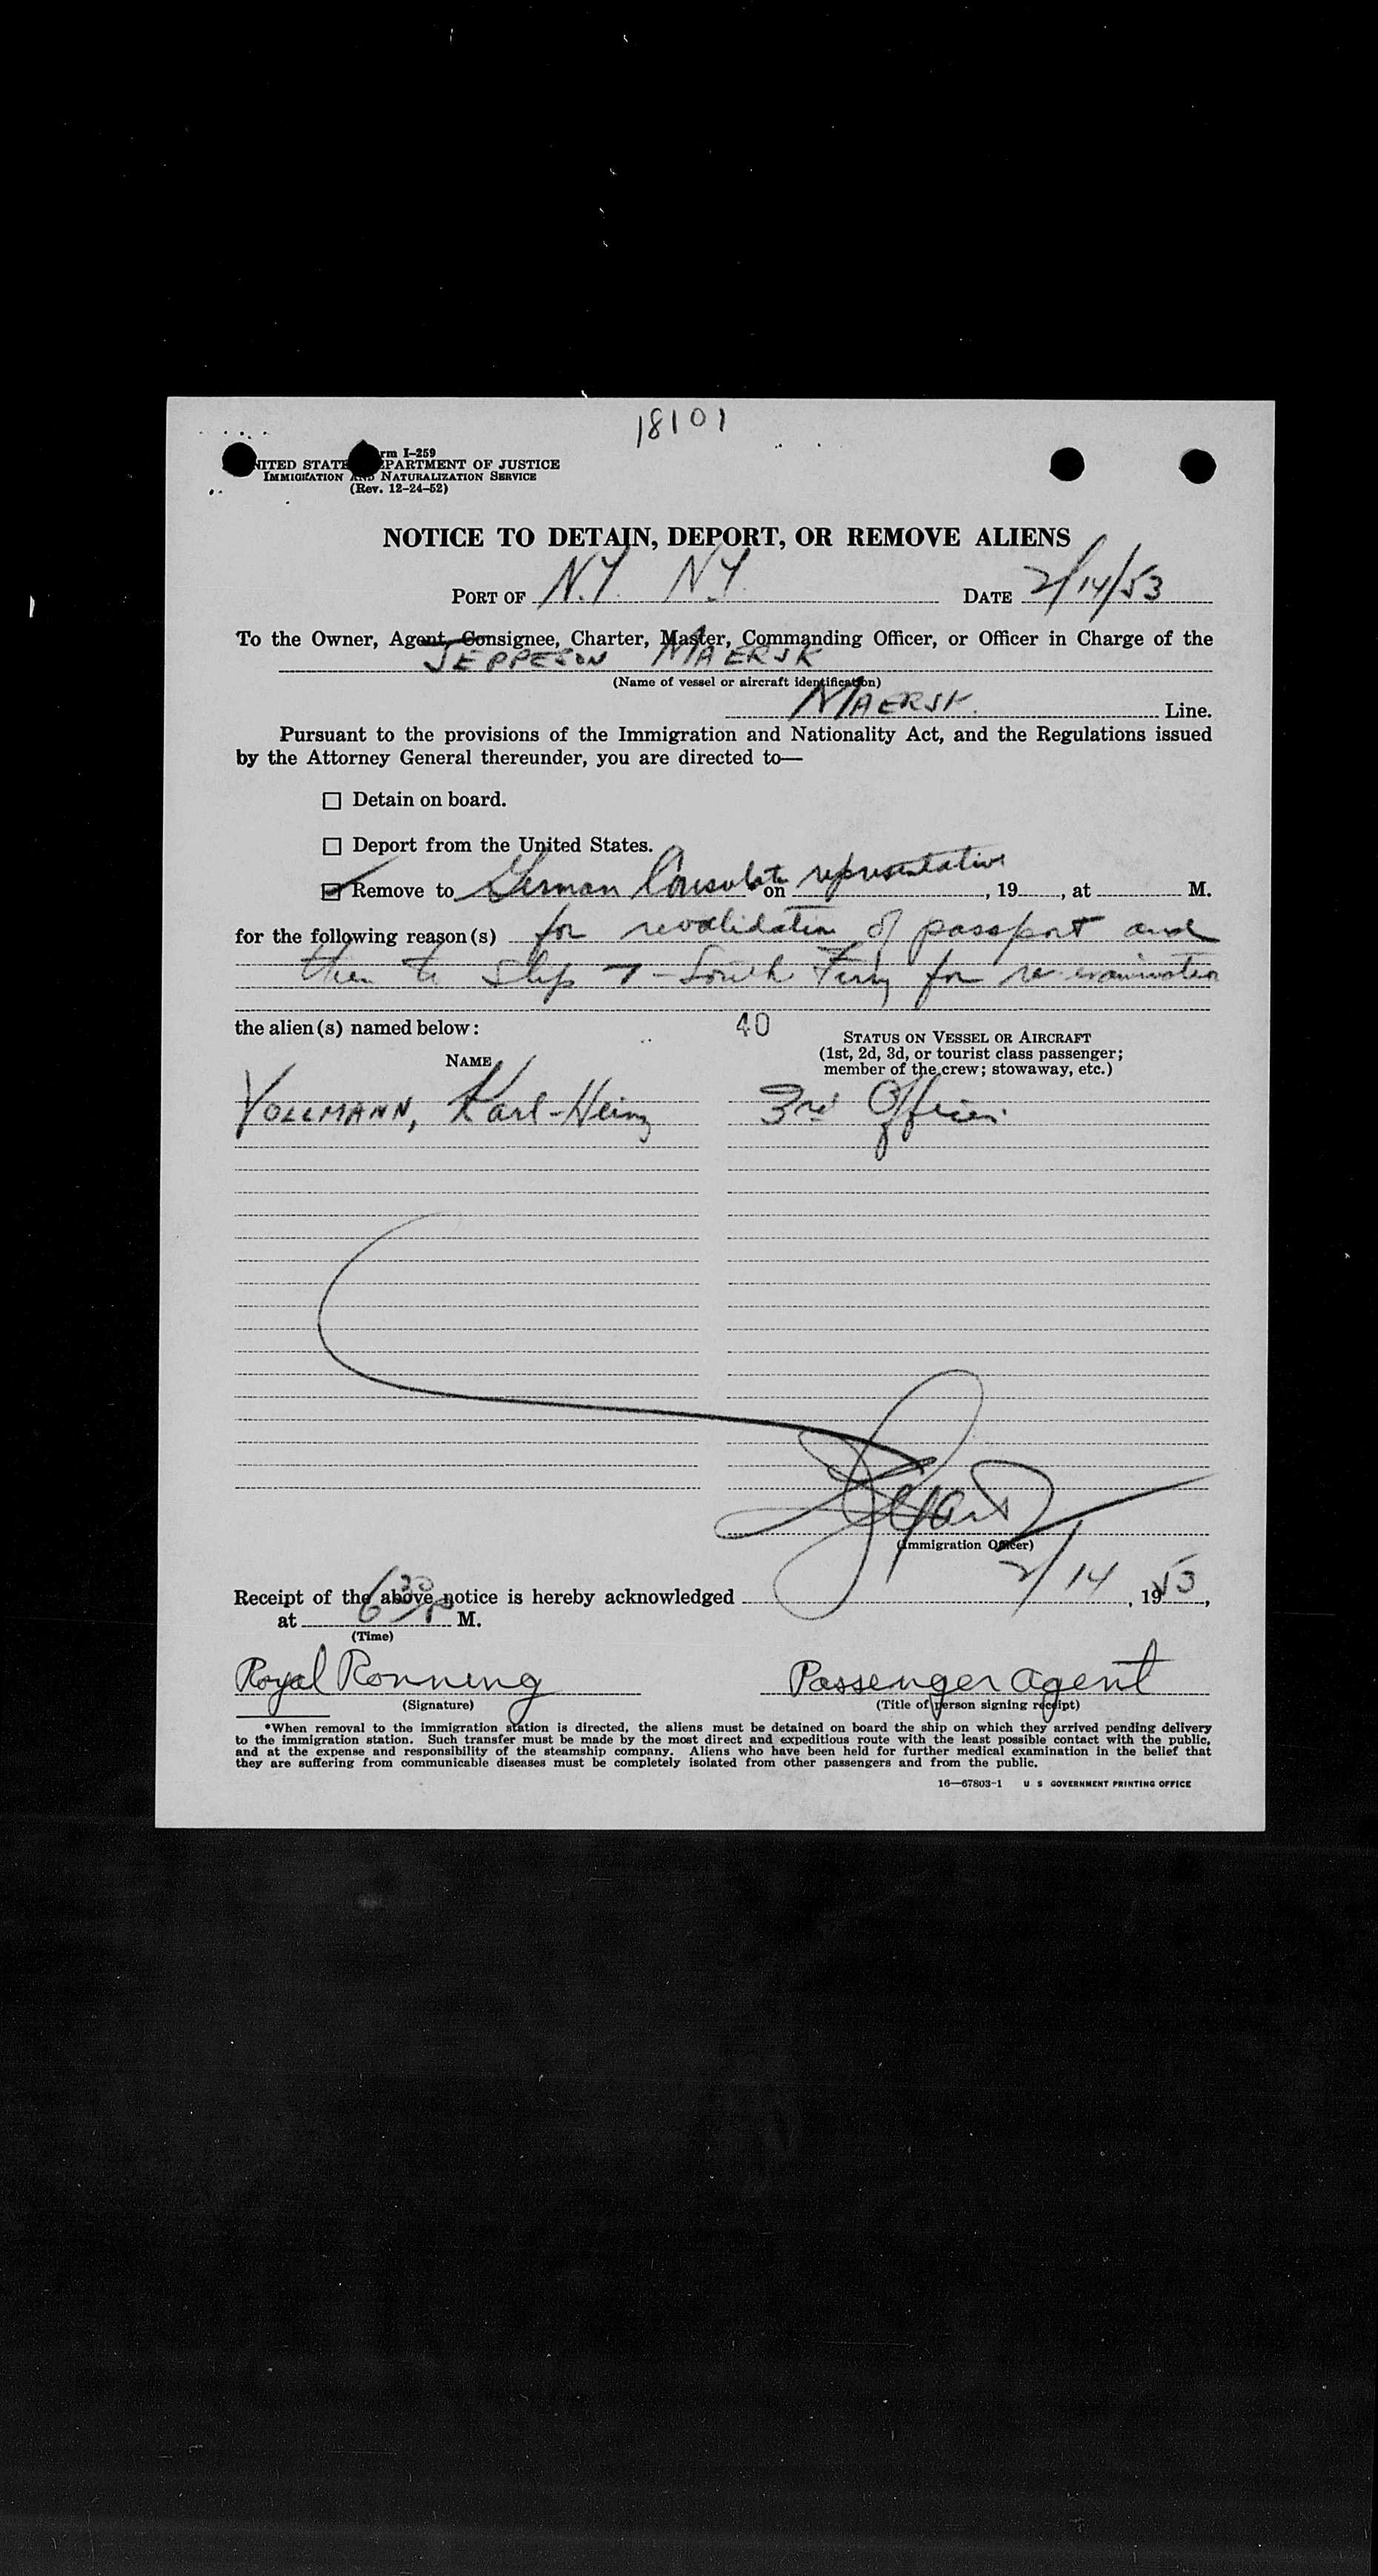 18101
rm I-259
NITED STATE PARTMENT OF JUSTICE
IMMIGRATION AND NATURALIZATION SERVICE
(Rev. 12-24-52)
NOTICE TO DETAIN, DEPORT, OR REMOVE ALIENS
PORT OF N.Y. N.Y. DATE 2/14/53
To the Owner, Agent, Consignee, Charter, Master, Commanding Officer, or Officer in Charge of the
JEPPESON MAERSK
(Name of vessel or aircraft identification)
MAERSK Line.
Pursuant to the provisions of the Immigration and Nationality Act, and the Regulations issued
by the Attorney General thereunder, you are directed to—
☐ Detain on board.
☐ Deport from the United States.
☑ Remove to German Consulate on representative, 19, at M.
for the following reason(s) for revalidation of passport and
then to Slip 7 - South Ferry for re-examination
the alien(s) named below:
40
STATUS ON VESSEL OR AIRCRAFT
(1st, 2d, 3d, or tourist class passenger;
member of the crew; stowaway, etc.)
NAME
VOLLMANN, Karl-Heinz 3rd Officer
(Immigration Officer)
Receipt of the above notice is hereby acknowledged 2/14, 1953,
at 6 30 P M.
(Time)
Royal Ronning Passenger agent
(Signature) (Title of person signing receipt)
*When removal to the immigration station is directed, the aliens must be detained on board the ship on which they arrived pending delivery
to the immigration station. Such transfer must be made by the most direct and expeditious route with the least possible contact with the public,
and at the expense and responsibility of the steamship company. Aliens who have been held for further medical examination in the belief that
they are suffering from communicable diseases must be completely isolated from other passengers and from the public.
16—67803-1 U S GOVERNMENT PRINTING OFFICE